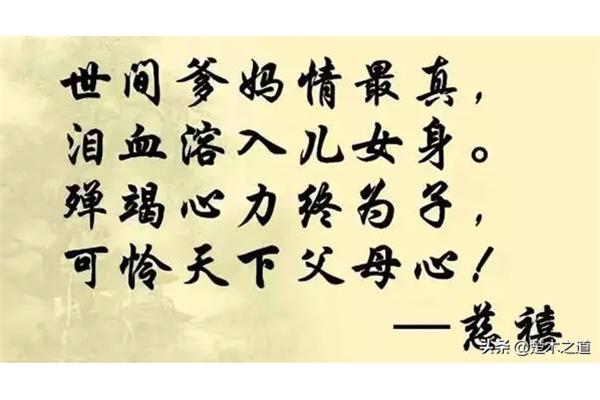 世间爹妈情最真，
泪血溶入儿女身。
殚竭心力终为子，
可怜天下父母心！
——慈禧
头条 @楚木之道